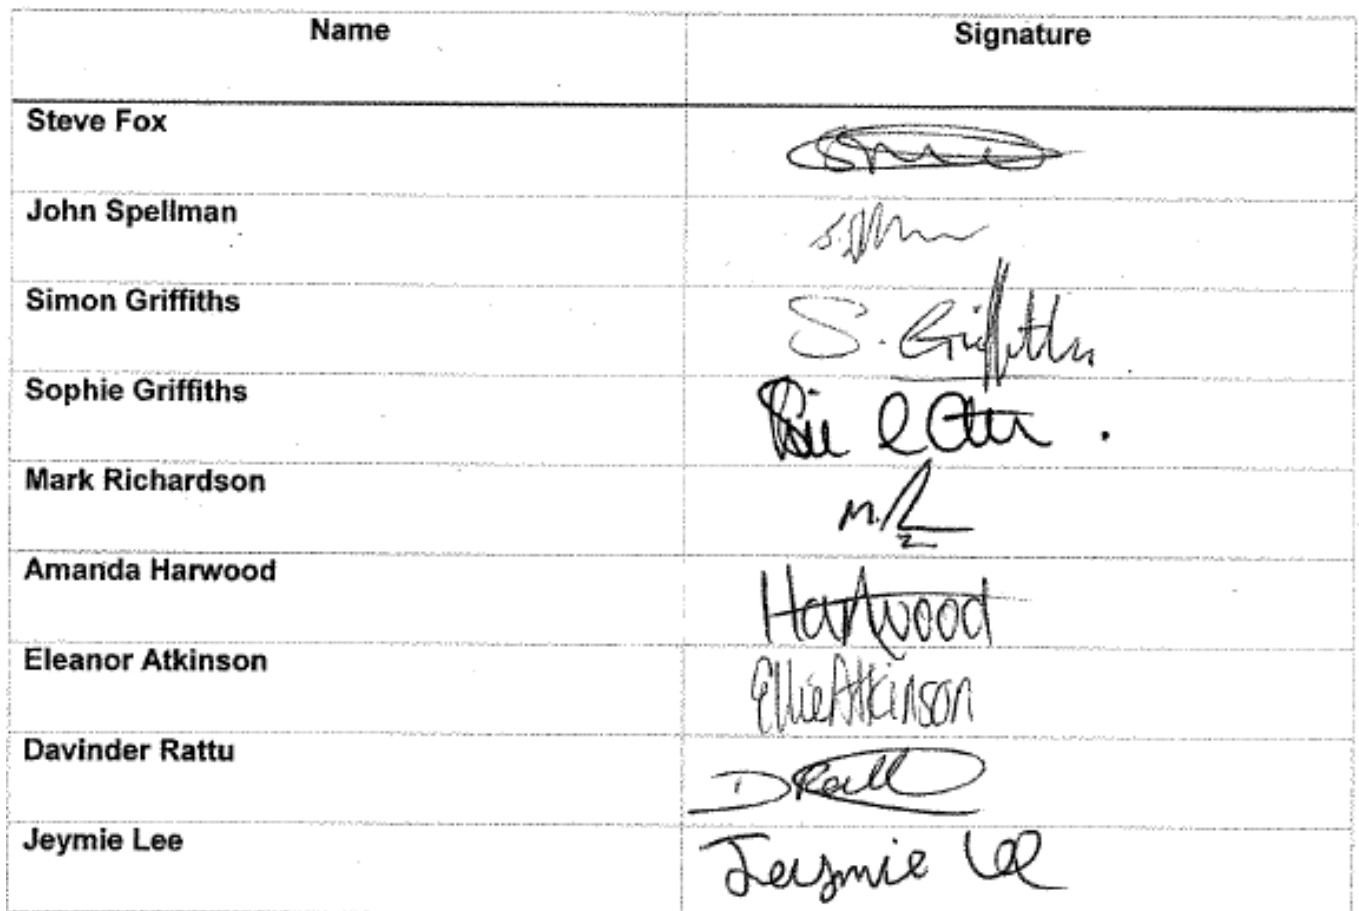 Name Signature
Steve Fox
John Spellman
Simon Griffiths S. Griffiths
Sophie Griffiths
Mark Richardson M.R
Amanda Harwood Harwood
Eleanor Atkinson Ellie Atkinson
Davinder Rattu DRattu
Jeymie Lee Jeymie Lee